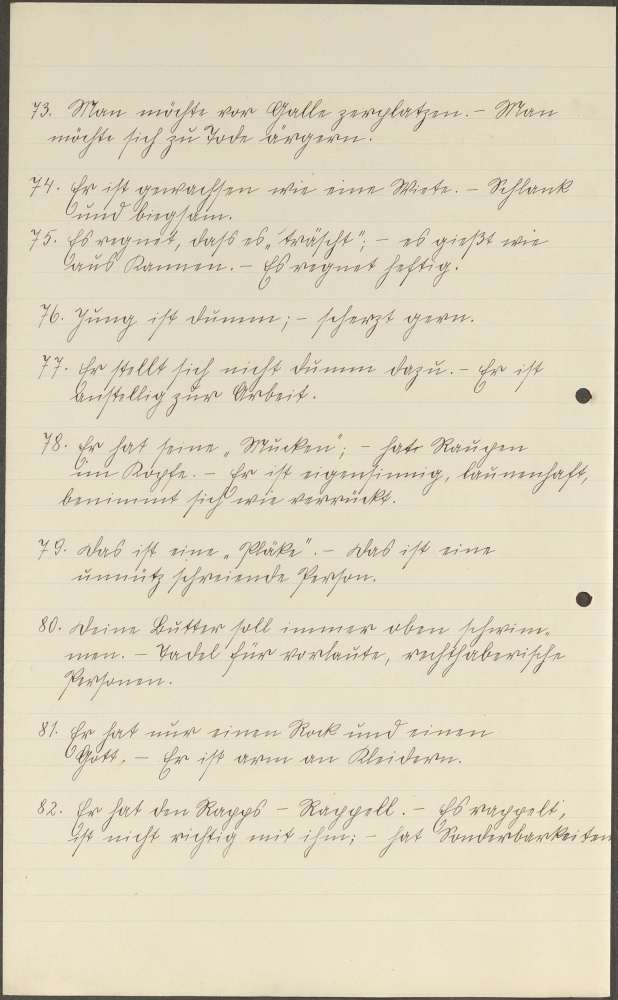 73. Man möchte vor Galle zerplatzen. – Man
möchte sich zu Tode ärgern.
74. Er ist gewachsen wie eine Wiete. – Schlank
und biegsam.
75. Es regnet, dass es „träscht"; – es gießt wie
aus Kannen. – Es regnet heftig.
76. Jung ist dumm; – scherzt gern.
77. Er stellt sich nicht dumm dazu. – Er ist
anstellig zur Arbeit.
78. Er hat seine „Mucken"; – hat Raupen
im Kopfe. – Er ist eigensinnig, launenhaft,
benimmt sich wie verrückt.
79. Das ist eine „Pläke". – Das ist eine
unnütz schreiende Person.
80. Deine Butter soll immer oben schwim-
men. – Tadel für vorlaute, rechthaberische
Personen.
81. Er hat nur einen Rock und einen
Gott. – Er ist arm an Kleidern.
82. Er hat den Rapps – Rappell. – Es rappelt,
ist nicht richtig mit ihm; – hat Sonderbarkeiten